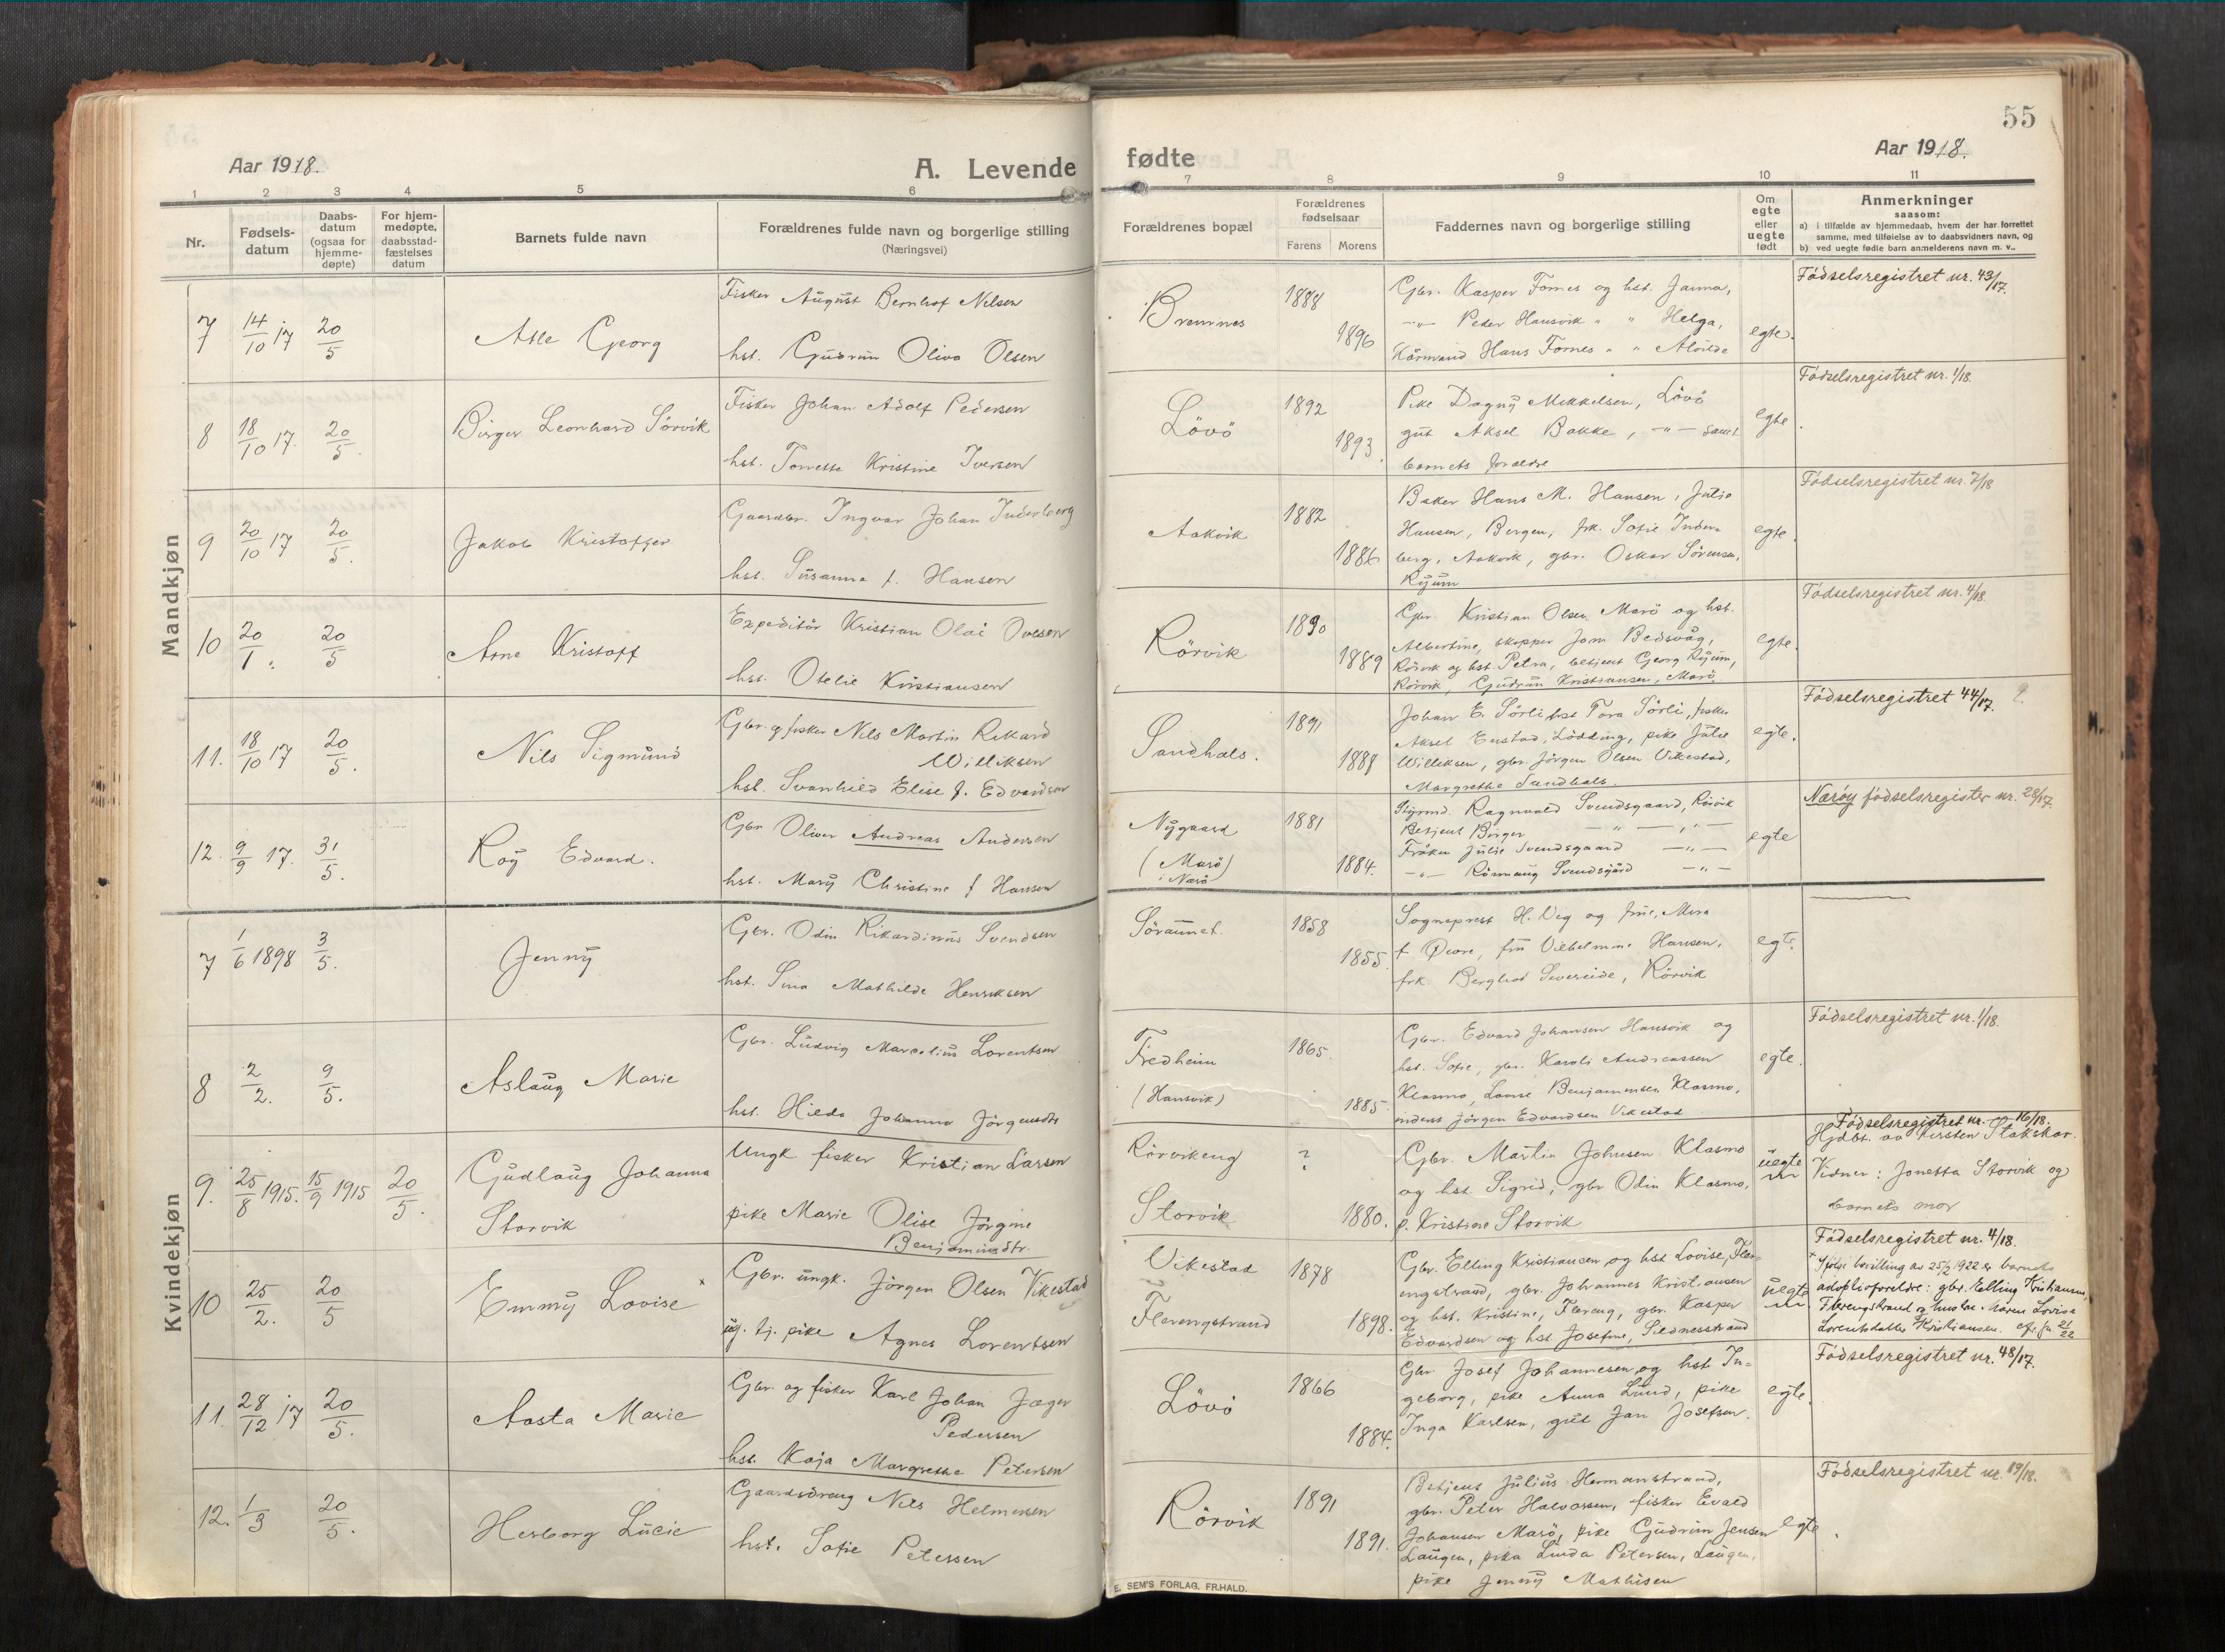 55
Aar 1918.
A. Levende
fødte
Aar 1918.
1 2 3 4 5 6 7 8 9 10 11
Nr.
Fødsels-
datum
Daabs-
datum
(ogsaa for
hjemme-
døpte)
For hjem-
medøpte,
daabsstad-
fæstelses
datum
Barnets fulde navn
Forældrenes fulde navn og borgerlige stilling
(Næringsvei)
Forældrenes bopæl
Forældrenes
fødselsaar
Farens Morens
Faddernes navn og borgerlige stilling
Om
egte
eller
uegte
født
Anmerkninger
saasom:
a) i tilfælde av hjemmedaab, hvem der har forrettet
samme, med tilføielse av to daabsvidners navn, og
b) ved uegte fødte barn anmelderens navn m. v..
Mandkjøn
7 14/10 17 20/5
Atle Georg
Fisker August Bernhof Nilsen
hst. Gudrun Oliva Olsen
Bremnes
1888
1896
Gbr. Kasper Fornes og hst. Janna,
-"- Peder Hansvik " " Helga,
Hans Fornes " " Alvilde
egte.
Fødselsregistret nr. 43/17.
8 18/10 17. 20/5.
Birger Leonhard Sörvik
Fisker Johan Adolf Pedersen
hst. Tomette Kristine Iversen
Lövö
1892
1893.
Pike Dagny Mikkelsen, Lövö
gut Aksel Bakke, -"- samt
barnets foreldre
egte.
Fødselsregistret nr. 1/18.
9 20/10 17 20/5.
Jakob Kristoffer
Gaardbr. Ingvar Johan Inderberg
hst. Susanna f. Hansen
Aakvik
1882
1886
Baker Hans M. Hansen, Julie
Hansen, Bergen, frk. Sofie Inder-
berg, Aakvik, gbr. Oskar Sörensen,
Ryum
egte.
Fødselsregistret nr. 7/18
10 20/1. 20/5
Arne Kristoff
Expeditör Kristian Olai Ovesen
hst. Otelie Kristiansen
Rörvik
1890
1889
Gbr. Kristian Olsen Marö og hst.
Albertine, skipper Jom Bedsvåg,
Rörvik og hst. Petra, betjent Georg Ryum,
Rörvik, Gudrun Kristiansen, Marö.
egte.
Fødselsregistret nr. 4/18.
11. 18/10 17 20/5.
Nils Sigmund
Gbr. og fisker Nils Martin Rikard
Williksen
hst. Svanhild Elise f. Edvardsen
Sandhals.
1891
1888
Johan E. Sörli hst Tora Sörli, fisker
Aksel Enstad, Lödding, pike Julie
Williksen, gbr. Jörgen Olsen Vikestad,
Margrethe Sandhals.
egte.
Fødselsregistret 44/17.
12. 9/9 17. 31/5.
Roy Edvard.
Gbr Oliver Andreas Andersen
hst. Mary Christine f Hansen
Nygaard
(Marö
i Nærö)
1881
1884.
Styrmd. Ragnvald Svendsgaard, Rörvik
Betjent Birger -"- -"-
Fröken Julie Svendsgaard -"-
-"- Rönnaug Svendsgård -"-
egte
Nærøy fødselsregister nr. 28/17.
Kvindekjøn
7 1/6 1898 3/5.
Jenny
Gbr. Odin Rikardinus Svendsen
hst. Sina Mathilde Henriksen
Söraunet.
1858
1855.
Sogneprest H. Veg og frue, Mira
f Øvre, fru Vilhelmine Hansen,
frk. Bergliot Sevareide, Rörvik
egte.
8 2/2. 9/5.
Aslaug Marie
Gbr. Ludvig Marselius Lorentsen
hst. Hilda Johanna Jörgensdtr
Fredheim
(Hansvik)
1865.
1885.
Gbr. Edvard Johansen Hansvik og
hst. Sofie, gbr. Karoli Andreassen
Klasmo, Lovise Benjaminsen Klasmo,
inderst Jörgen Edvardsen Vikestad
egte.
Fødselsregistret nr. 1/18.
9. 25/8 1915. 15/9 1915 20/5.
Gudlaug Johanna
Storvik
Ungk fisker Kristian Larsen
pike Marie Olise Jörgine
Benjaminsdtr.
Rörvikeng
Storvik
?
1880.
Gbr. Martin Johnsen Klasmo
og hst. Sigrid, gbr Odin Klasmo,
p. Kristine Storvik
uegte
Fødselsregistret nr. 16/18.
Hjdbt. av Kirsten Stakskar.
Vidner: Jonetta Storvik og
barnets mor
10 25/2. 20/5
Emmy Lovise ×
Gbr. ungk. Jörgen Olsen Vikestad
ug. tj. pike Agnes Lorentsen
Vikestad
Flerengstrand
1878
1898.
Gbr. Elling Kristiansen og hst Lovise, Fler-
engstrand, gbr. Johannes Kristiansen
og hst. Kristine, Flereng, gbr. Kasper
Edvardsen og hst Josefine, Sildnesstrand
uegte
Fødselsregistret nr. 4/18.
× Ifölge bevilling av 25/2 1922 er barnets
adoptivforeldre: gbr. Elling Kristiansen,
Flerengstrand og hustru Maren Lovise
Lorentsdatter Kristiansen. cfr. jn 21/22
11. 28/12 17 20/5.
Aasta Marie
Gbr. og fisker Karl Johan Jæger
Pedersen
hst. Kaja Margrethe Petersen
Lövö
1866
1884.
Gbr Josef Johannesen og hst In-
geborg, pike Anna Lund, pike
Inga Karlsen, gut Jan Josefsen.
egte.
Fødselsregistret nr. 48/17.
12. 1/3 20/5.
Herborg Lucie
Gaardsdreng Nils Helmersen
hst. Sofie Petersen
Rörvik
1891
1891.
Betjent Julius Hermanstrand,
gbr. Peter Halvorsen, fisker Evald
Johansen Marö, pike Gudrun Jensen
Laugen, pike Linda Petersen, Laugen,
pike Jenny Mathisen
egte.
Fødselsregistret nr. 19/18.
E. SEM'S FORLAG, FR.HALD.